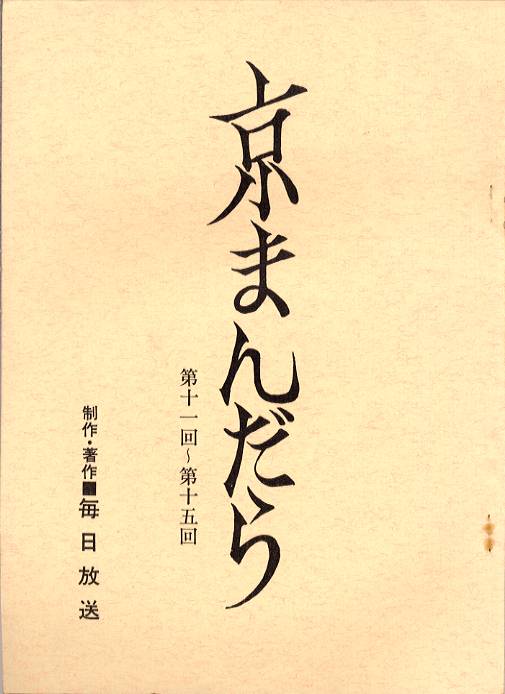 京まんだら
第十一回〜第十五回
制作・著作■毎日放送